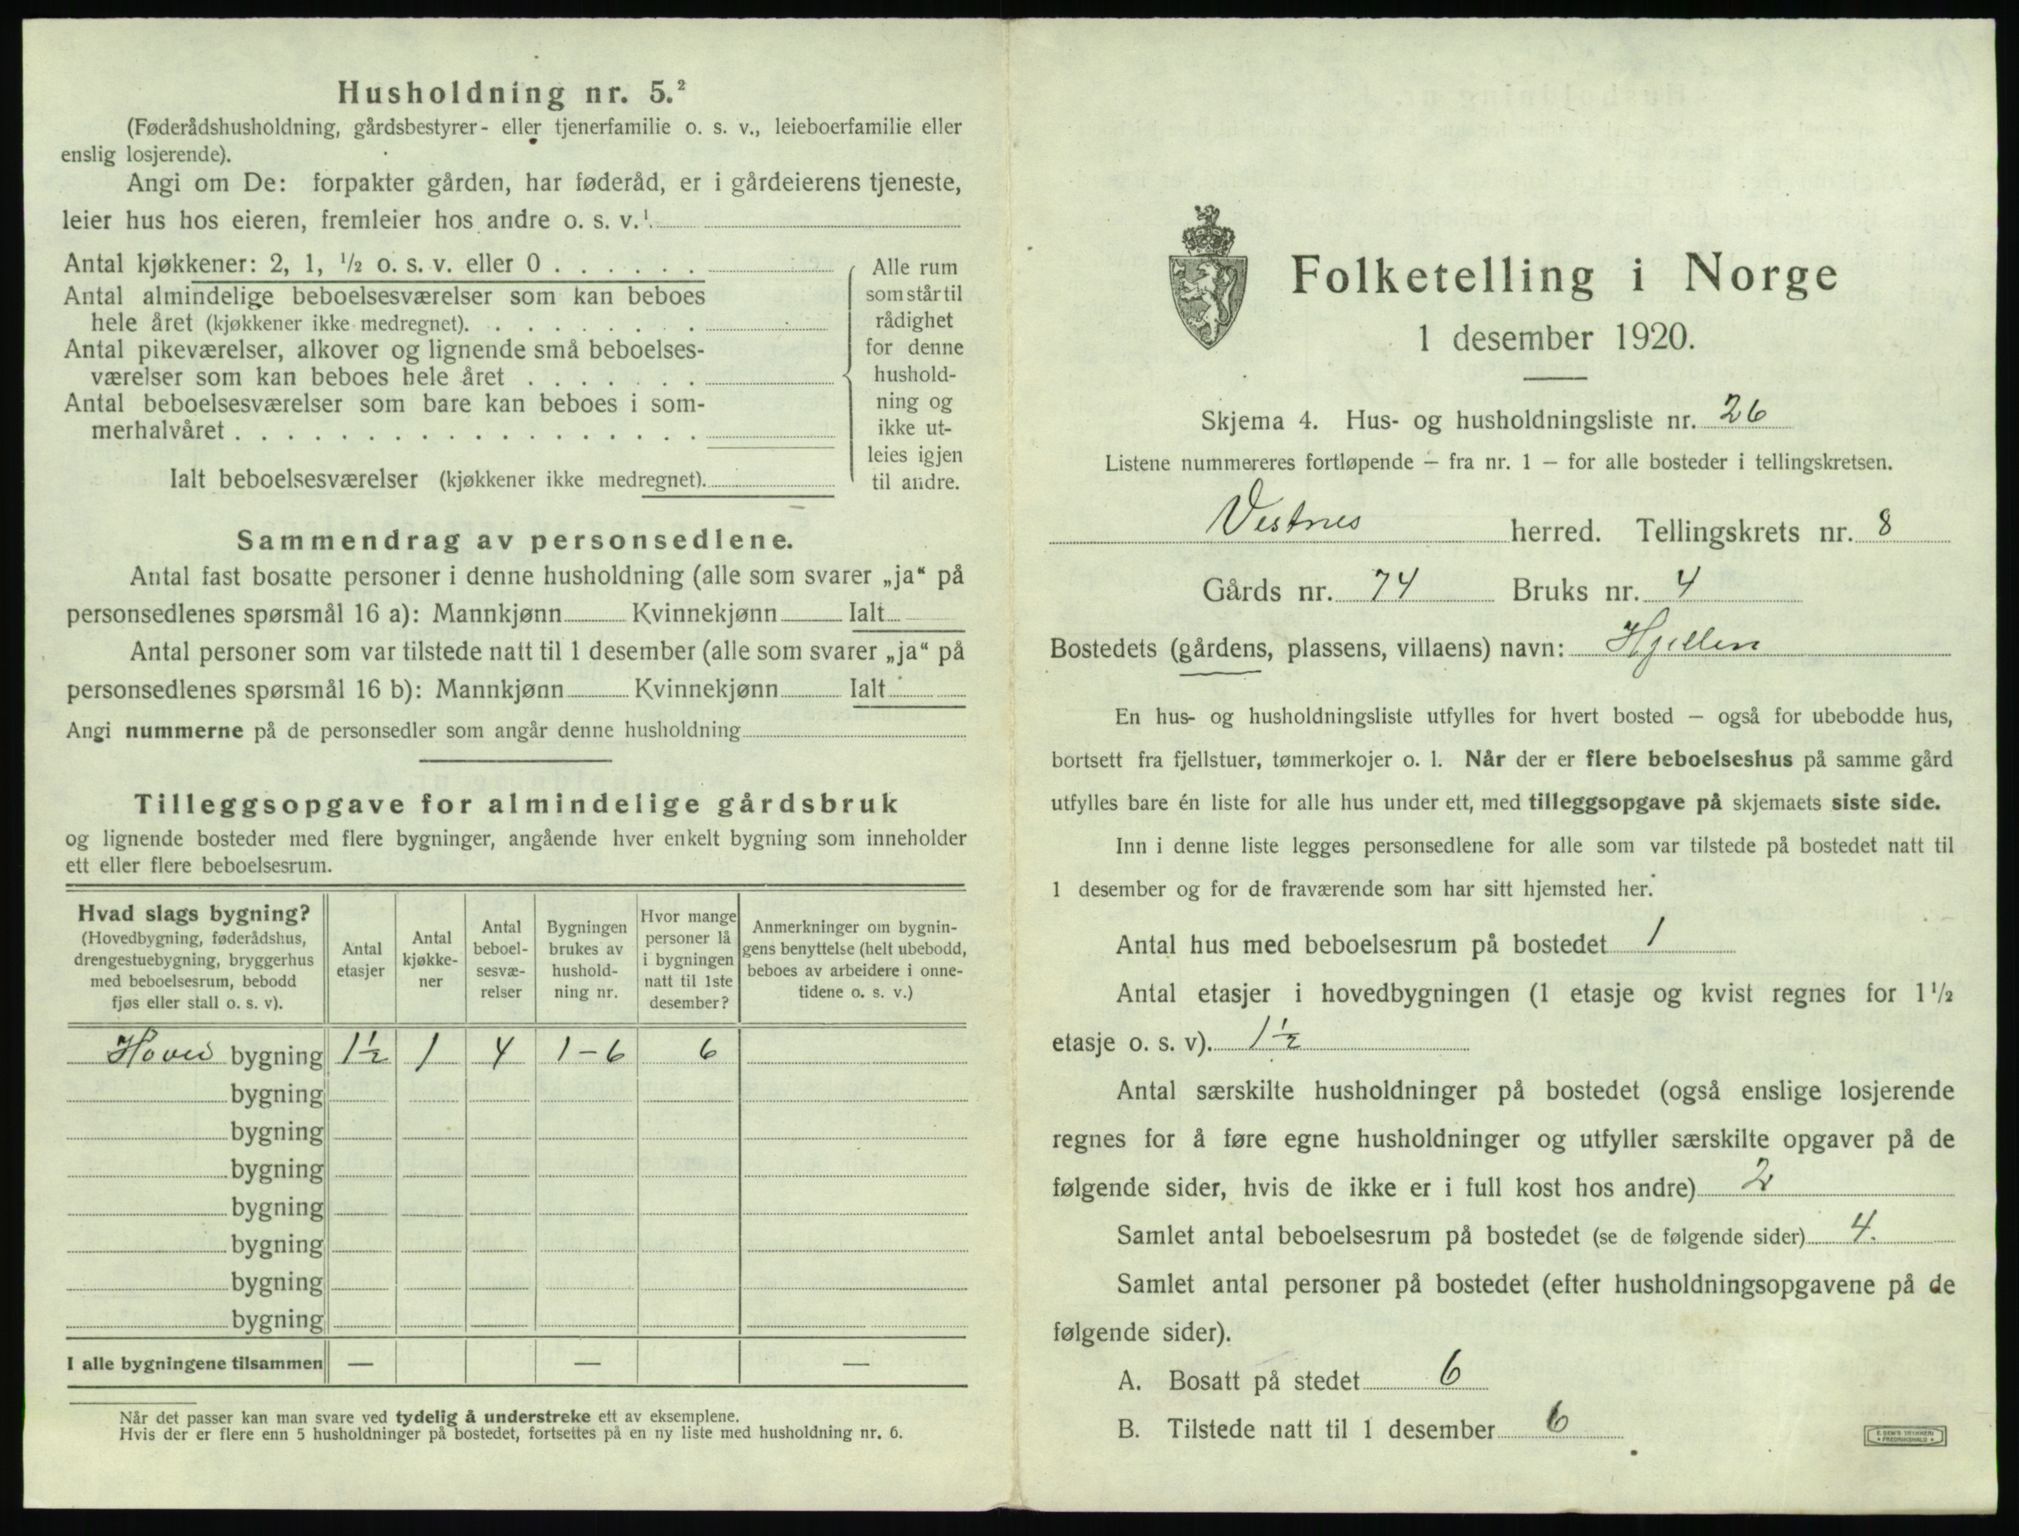 Husholdning nr. 5.²
(Føderådshusholdning, gårdsbestyrer- eller tjenerfamilie o. s. v., leieboerfamilie eller
enslig losjerende).
Angi om De: forpakter gården, har føderåd, er i gårdeierens tjeneste,
leier hus hos eieren, fremleier hos andre o. s. v.¹
Antal kjøkkener: 2, 1, ½ o. s. v. eller 0 . . . . . .
Antal almindelige beboelsesværelser som kan beboes
hele året (kjøkkener ikke medregnet). . . . . . . . .
Antal pikeværelser, alkover og lignende små beboelses-
værelser som kan beboes hele året . . . . . . .
Antal beboelsesværelser som bare kan beboes i som-
merhalvåret . . . . . . . . . . . . . . . . . .
Ialt beboelsesværelser (kjøkkener ikke medregnet).
Alle rum
som står til
rådighet
for denne
hushold-
ning og
ikke ut-
leies igjen
til andre.
Sammendrag av personsedlene.
Antal fast bosatte personer i denne husholdning (alle som svarer „ja“ på
personsedlenes spørsmål 16 a): Mannkjønn Kvinnekjønn Ialt
Antal personer som var tilstede natt til 1 desember (alle som svarer „ja“ på
personsedlenes spørsmål 16 b): Mannkjønn Kvinnekjønn Ialt
Angi nummerne på de personsedler som angår denne husholdning
Tilleggsopgave for almindelige gårdsbruk
og lignende bosteder med flere bygninger, angående hver enkelt bygning som inneholder
ett eller flere beboelsesrum.
Hvad slags bygning?
(Hovedbygning, føderådshus,
drengestuebygning, bryggerhus
med beboelsesrum, bebodd
fjøs eller stall o. s. v).
Antal
etasjer
Antal
kjøkke-
ner
Antal
beboel-
sesvæ-
relser
Bygningen
brukes av
hushold-
ning nr.
Hvor mange
personer lå
i bygningen
natt til 1ste
desember?
Anmerkninger om bygnin-
gens benyttelse (helt ubebodd,
beboes av arbeidere i onne-
tidene o. s. v.)
Hoved bygning 1½ 1 4 1-6 6
bygning
bygning
bygning
bygning
bygning
bygning
bygning
I alle bygningene tilsammen — — —
Når det passer kan man svare ved tydelig å understreke ett av eksemplene.
Hvis der er flere enn 5 husholdninger på bostedet, fortsettes på en ny liste med husholdning nr. 6.
Folketelling i Norge
1 desember 1920.
Skjema 4. Hus- og husholdningsliste nr. 26
Listene nummereres fortløpende – fra nr. 1 – for alle bosteder i tellingskretsen.
Vestnes herred. Tellingskrets nr. 8
Gårds nr. 74 Bruks nr. 4
Bostedets (gårdens, plassens, villaens) navn: Hjellen
En hus- og husholdningsliste utfylles for hvert bosted – også for ubebodde hus,
bortsett fra fjellstuer, tømmerkojer o. l. Når der er flere beboelseshus på samme gård
utfylles bare én liste for alle hus under ett, med tilleggsopgave på skjemaets siste side.
Inn i denne liste legges personsedlene for alle som var tilstede på bostedet natt til
1 desember og for de fraværende som har sitt hjemsted her.
Antal hus med beboelsesrum på bostedet 1
Antal etasjer i hovedbygningen (1 etasje og kvist regnes for 1½
etasje o. s. v). 1½
Antal særskilte husholdninger på bostedet (også enslige losjerende
regnes for å føre egne husholdninger og utfyller særskilte opgaver på de
følgende sider, hvis de ikke er i full kost hos andre) 2
Samlet antal beboelsesrum på bostedet (se de følgende sider) 4.
Samlet antal personer på bostedet (efter husholdningsopgavene på de
følgende sider).
A. Bosatt på stedet 6
B. Tilstede natt til 1 desember 6